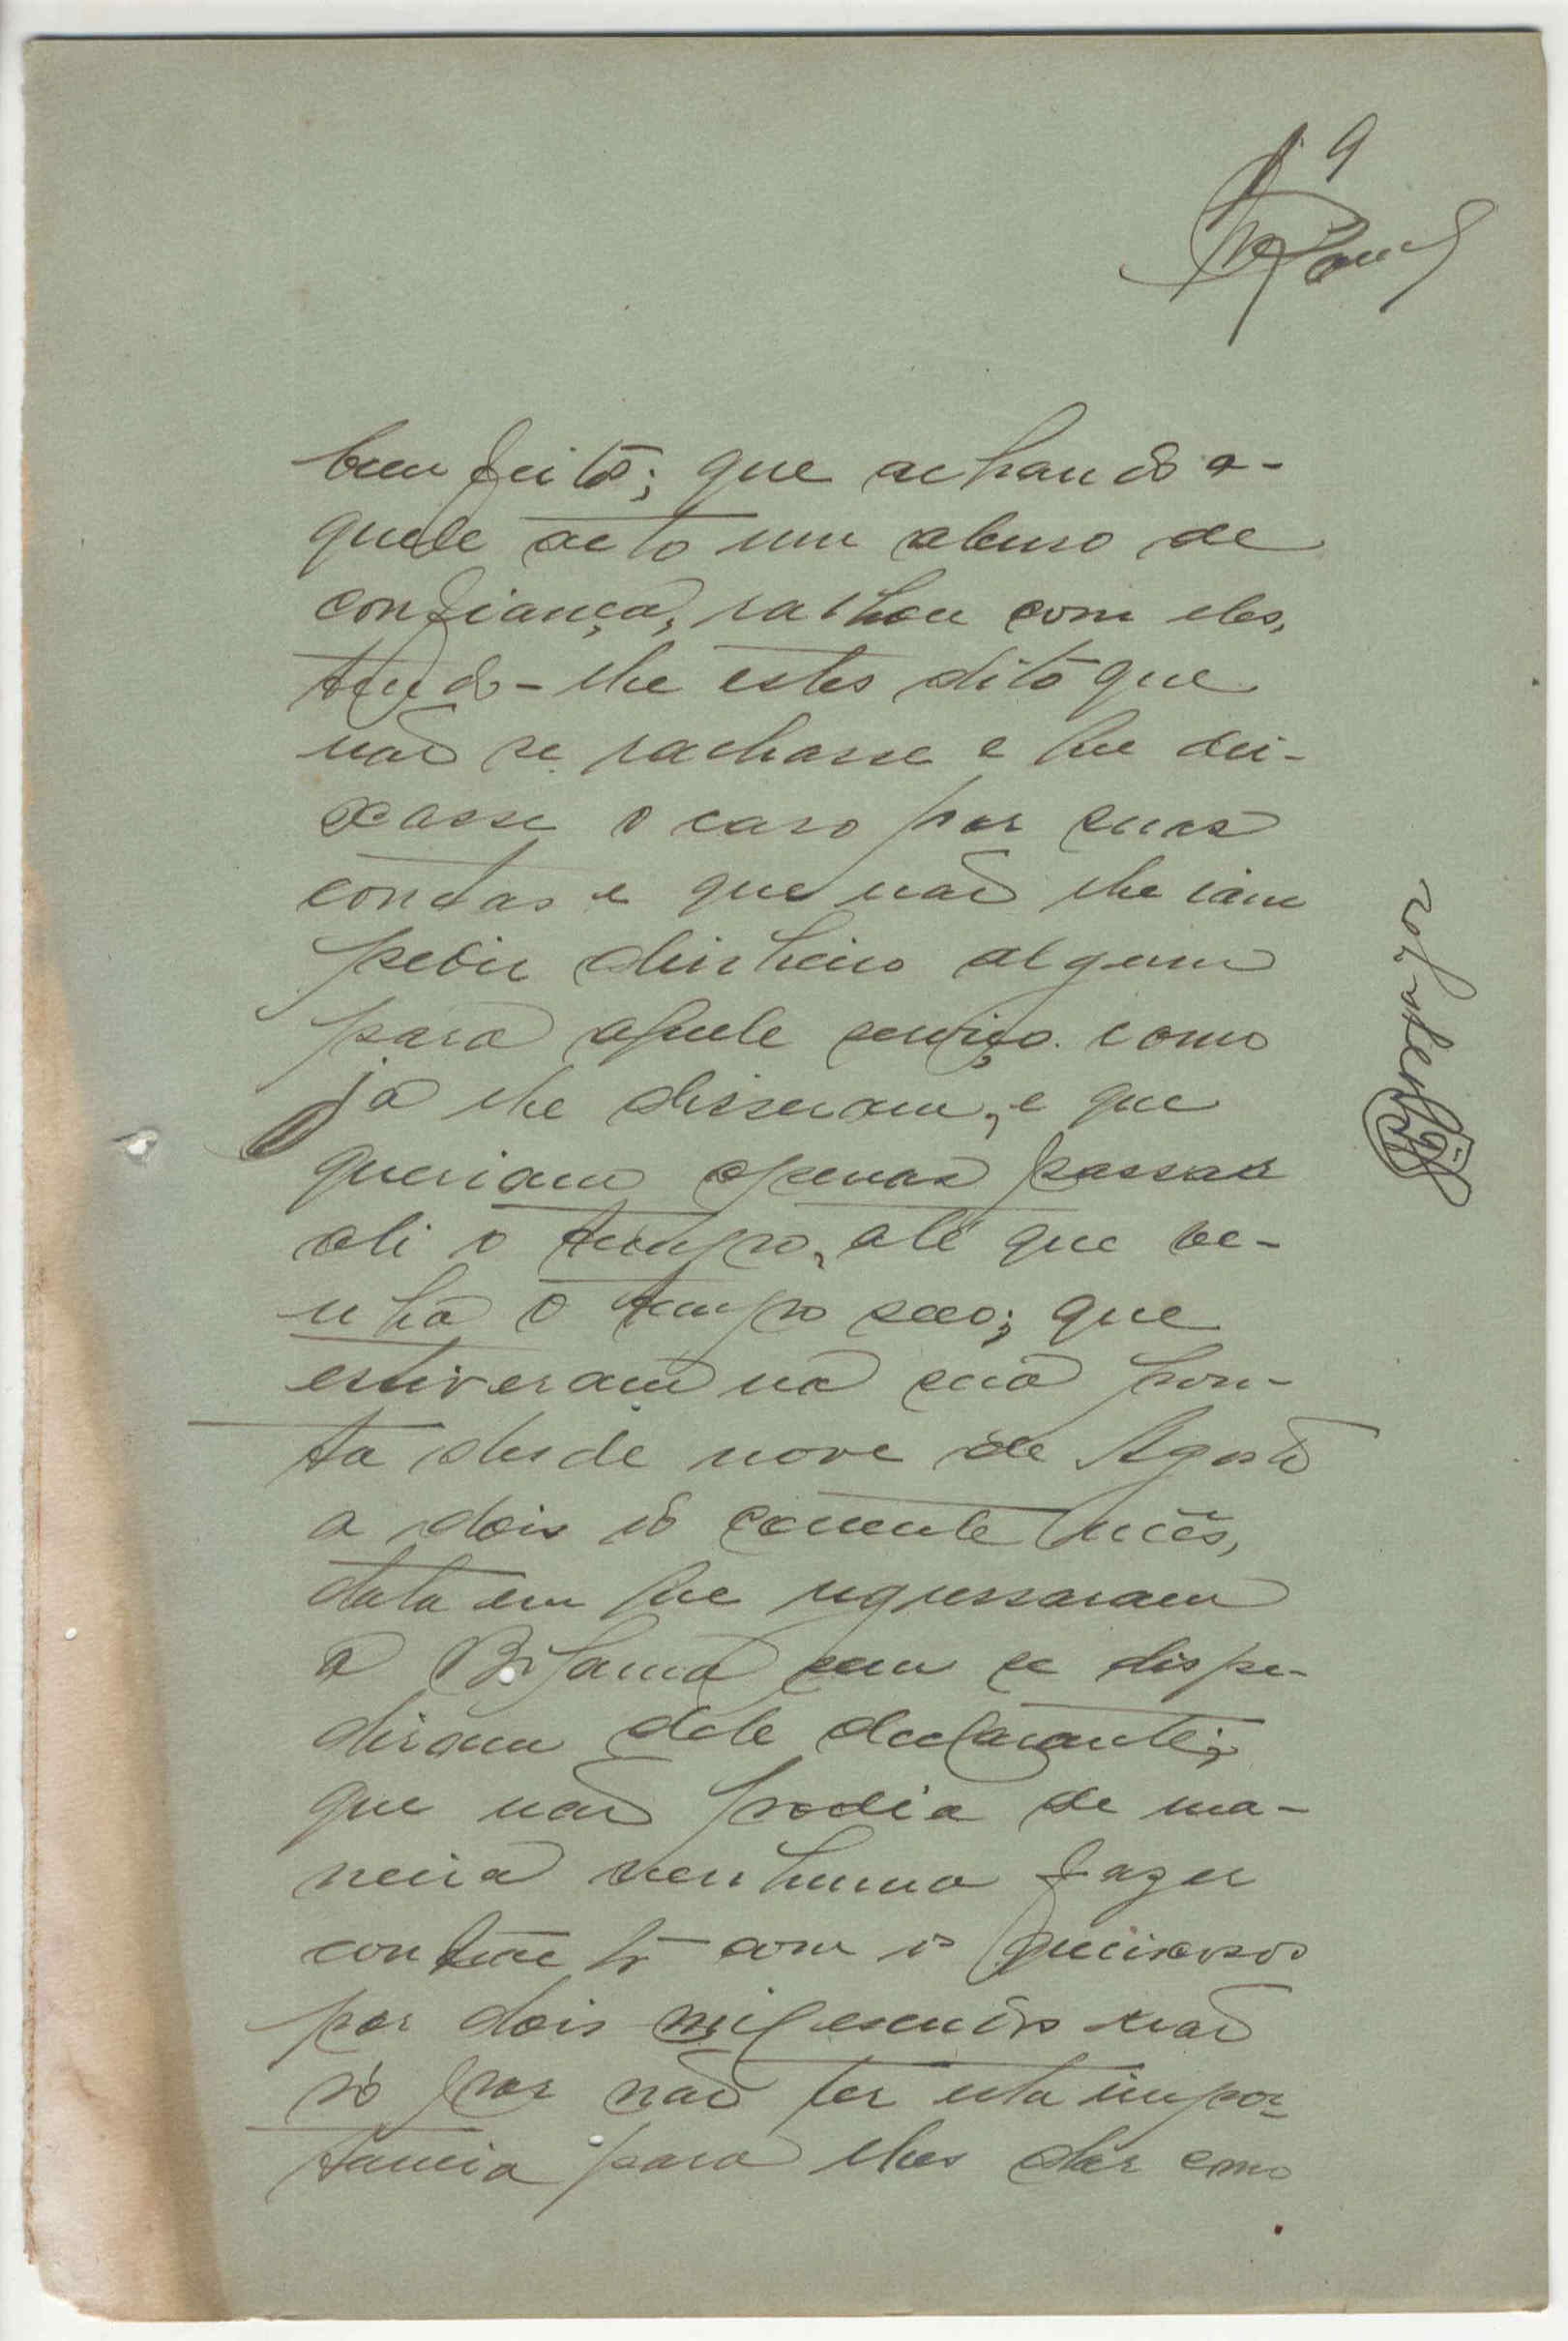 9
bem feito; que achando a-
quele acto um abuso de
confiança, ralhou com eles,
tendo-lhe estes dito que
não se ralhasse e que dei-
xasse o caso por suas
contas e que não lhe iam
pedir dinheiro algum
para aquele serviço como
já lhe disseram, e que
queriam apenas passar
ali o tempo, até que ve-
nha o tempo seco; que
estiveram na sua pon-
ta desde nove de Agosto
a dois do corrente mês,
data em que regressaram
a Bijamá sem se dispe-
diram dele declarante;
que não podia de ma-
neira nenhuma fazer
contracto com os queixosos
por dois mil escudos não
só por não ter esta impor-
tancia para lhes dar como